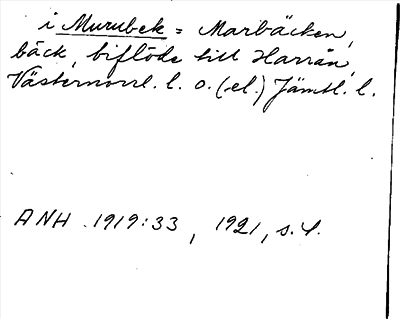 i Murubek = Marbäcken,
bäck, biflöde till Harrån,
Västernorrl. l. o. (el.) Jämtl. l.
ANH 1919:33, 1921, s. 4.